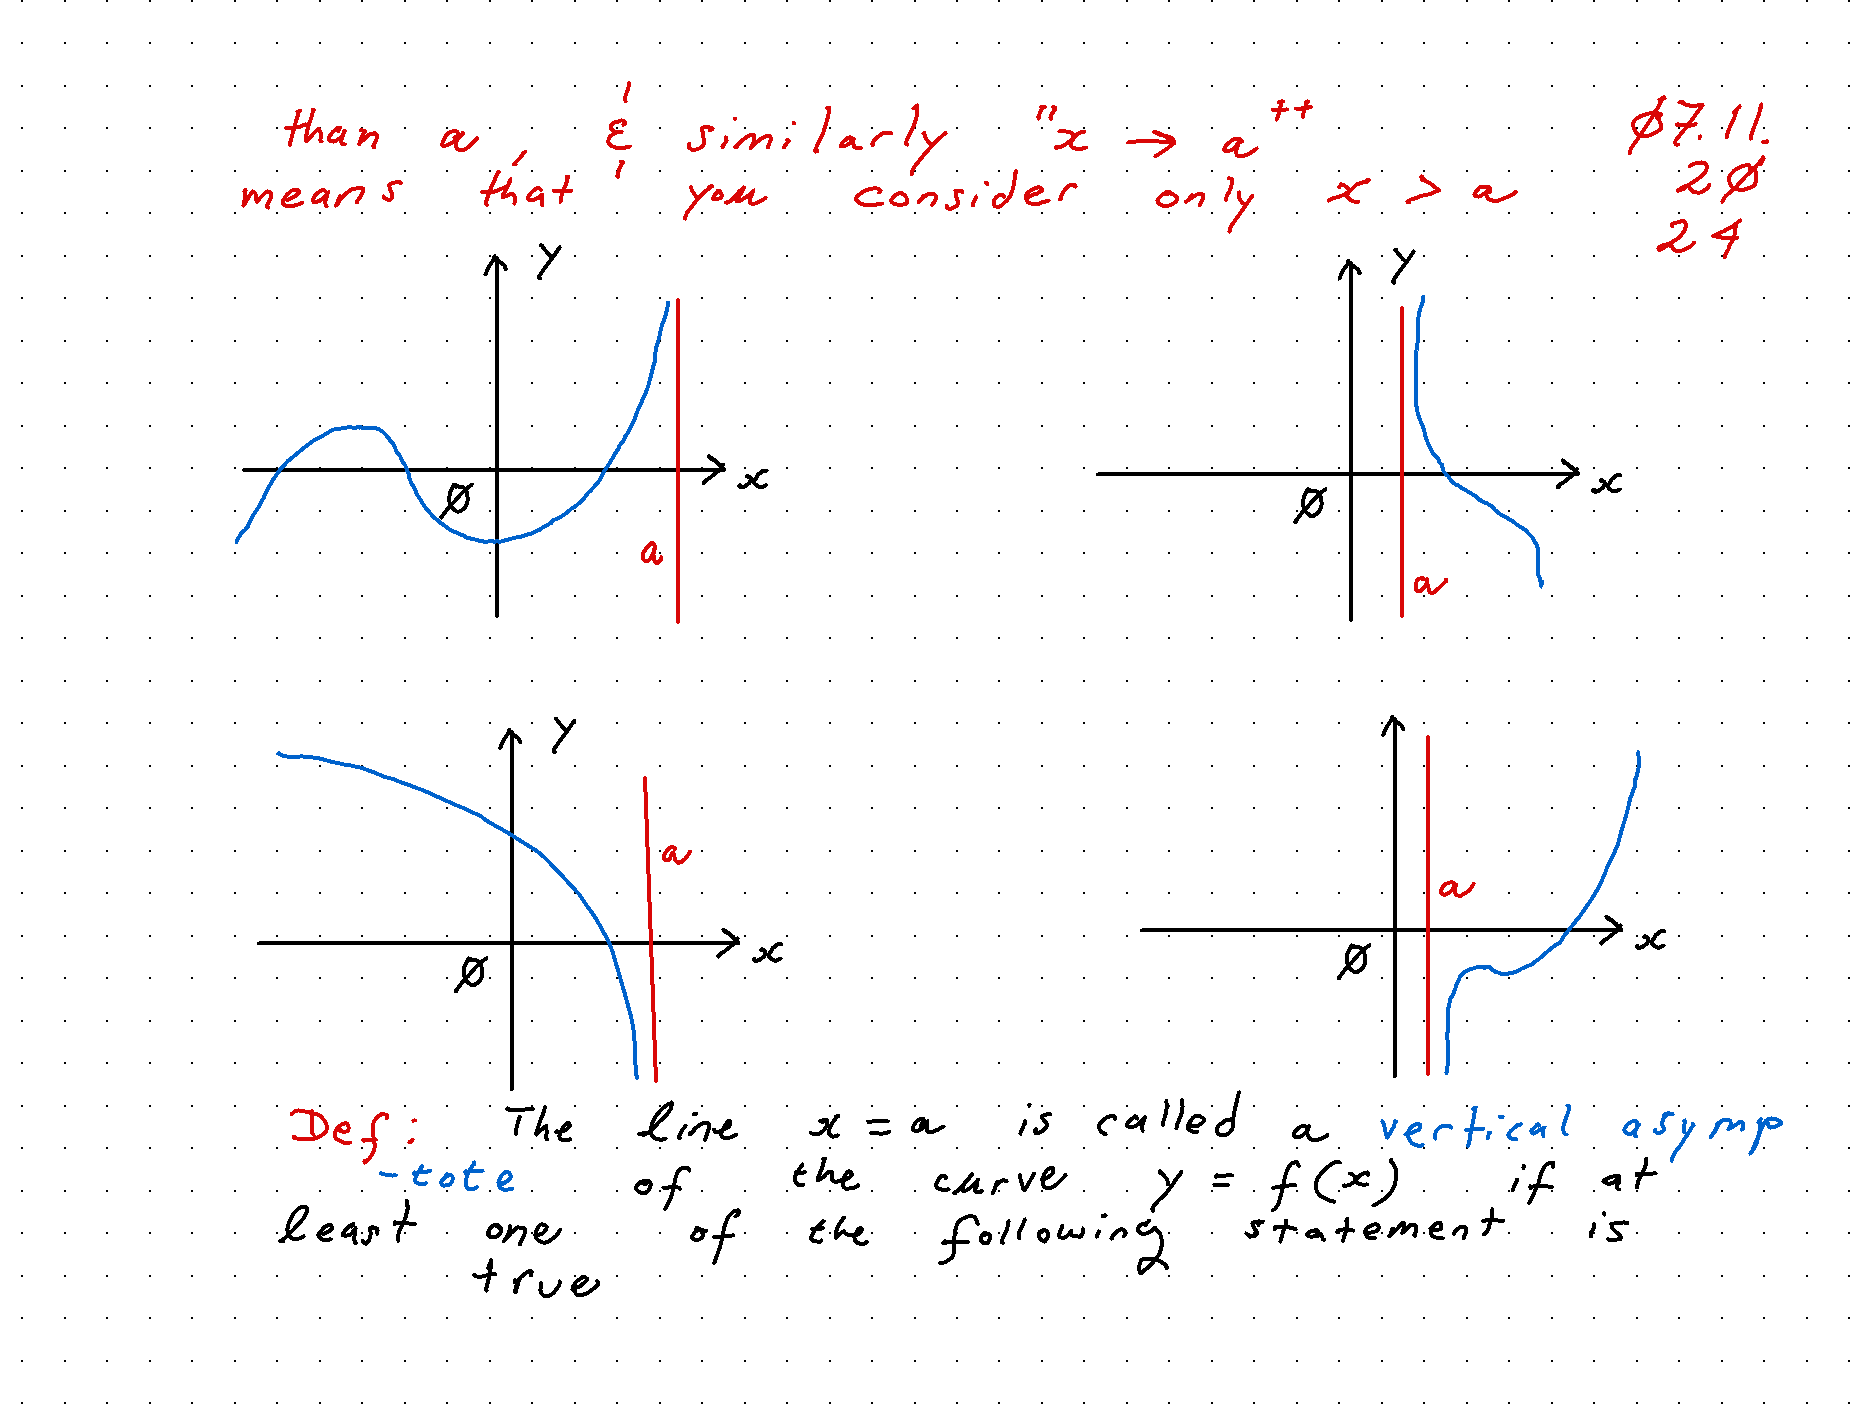 than a, & similarly "x → a⁺⁺
means that you consider only x > a
Ø7.11.
2Ø
24
y
x
Ø
a
y
x
Ø
a
y
x
Ø
a
x
Ø
a
Def: The line x = a is called a vertical asymp
-tote of the curve y = f(x) if at
least one of the following statement is
true